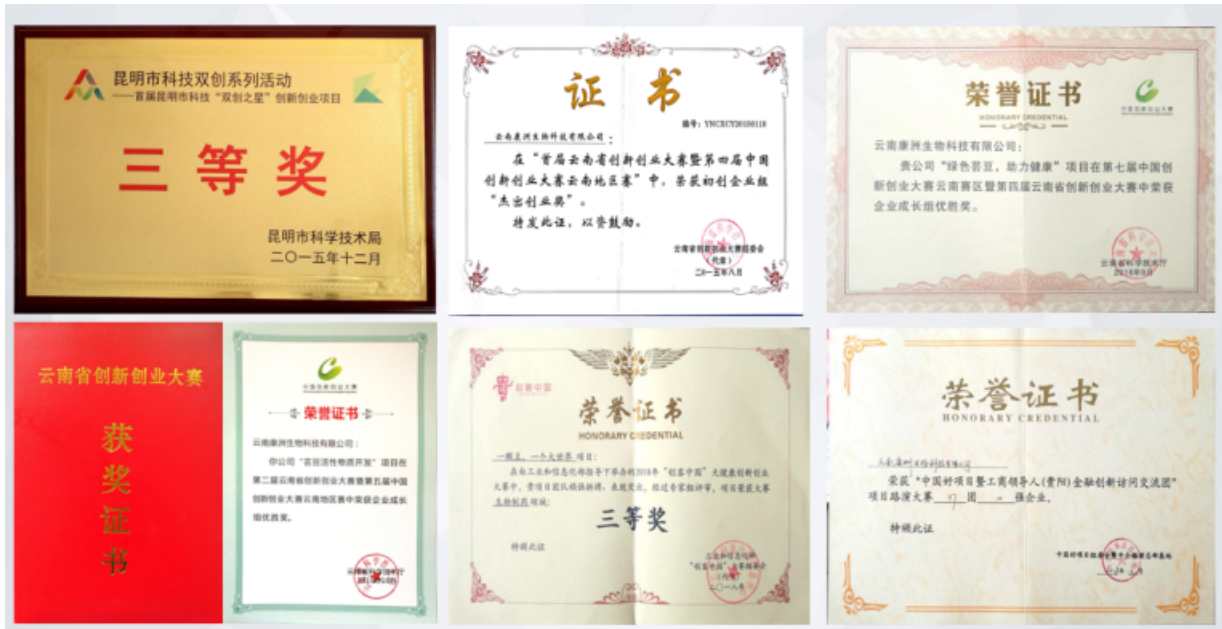 昆明市科技双创系列活动
——首届昆明市科技“双创之星”创新创业项目
三等奖
昆明市科学技术局
二〇一五年十二月
证书
编号：YNCXCY20150118
云南康洲生物科技有限公司：
在“首届云南省创新创业大赛暨第四届中国
创新创业大赛云南地区赛”中，荣获初创企业组
“杰出创业奖”。
特发此证，以资鼓励。
云南省创新创业大赛组委会
（代章）
二〇一五年八月
荣誉证书
HONORARY CREDENTIAL
中国创新创业大赛
云南康洲生物科技有限公司：
贵公司“绿色芸豆，助力健康”项目在第七届中国创
新创业大赛云南赛区暨第四届云南省创新创业大赛中荣获
企业成长组优胜奖。
云南省科学技术厅
2018年9月
云南省创新创业大赛
获奖证书
中国创新创业大赛
荣誉证书
云南康洲生物科技有限公司：
你公司“芸豆活性物质开发”项目在
第二届云南省创新创业大赛暨第五届中国
创新创业大赛云南地区赛中荣获企业成长
组优胜奖。
云南省科学技术厅
创客中国
荣誉证书
HONORARY CREDENTIAL
一颗豆，一个大世界 项目：
在由工业和信息化部指导下举办的2018年“创客中国”大健康创新创业
大赛中，贵项目团队顽强拼搏，表现突出，经过专家组评审，项目荣获大赛
生物制药领域：
三等奖
特颁此证
工业和信息化部
“创客中国”大赛组委会
（代章）
二〇一八年
荣誉证书
HONORARY CREDENTIAL
荣获“中国好项目暨工商领导人(贵阳)金融创新访问交流团”
项目路演大赛 团 强企业。
特颁此证